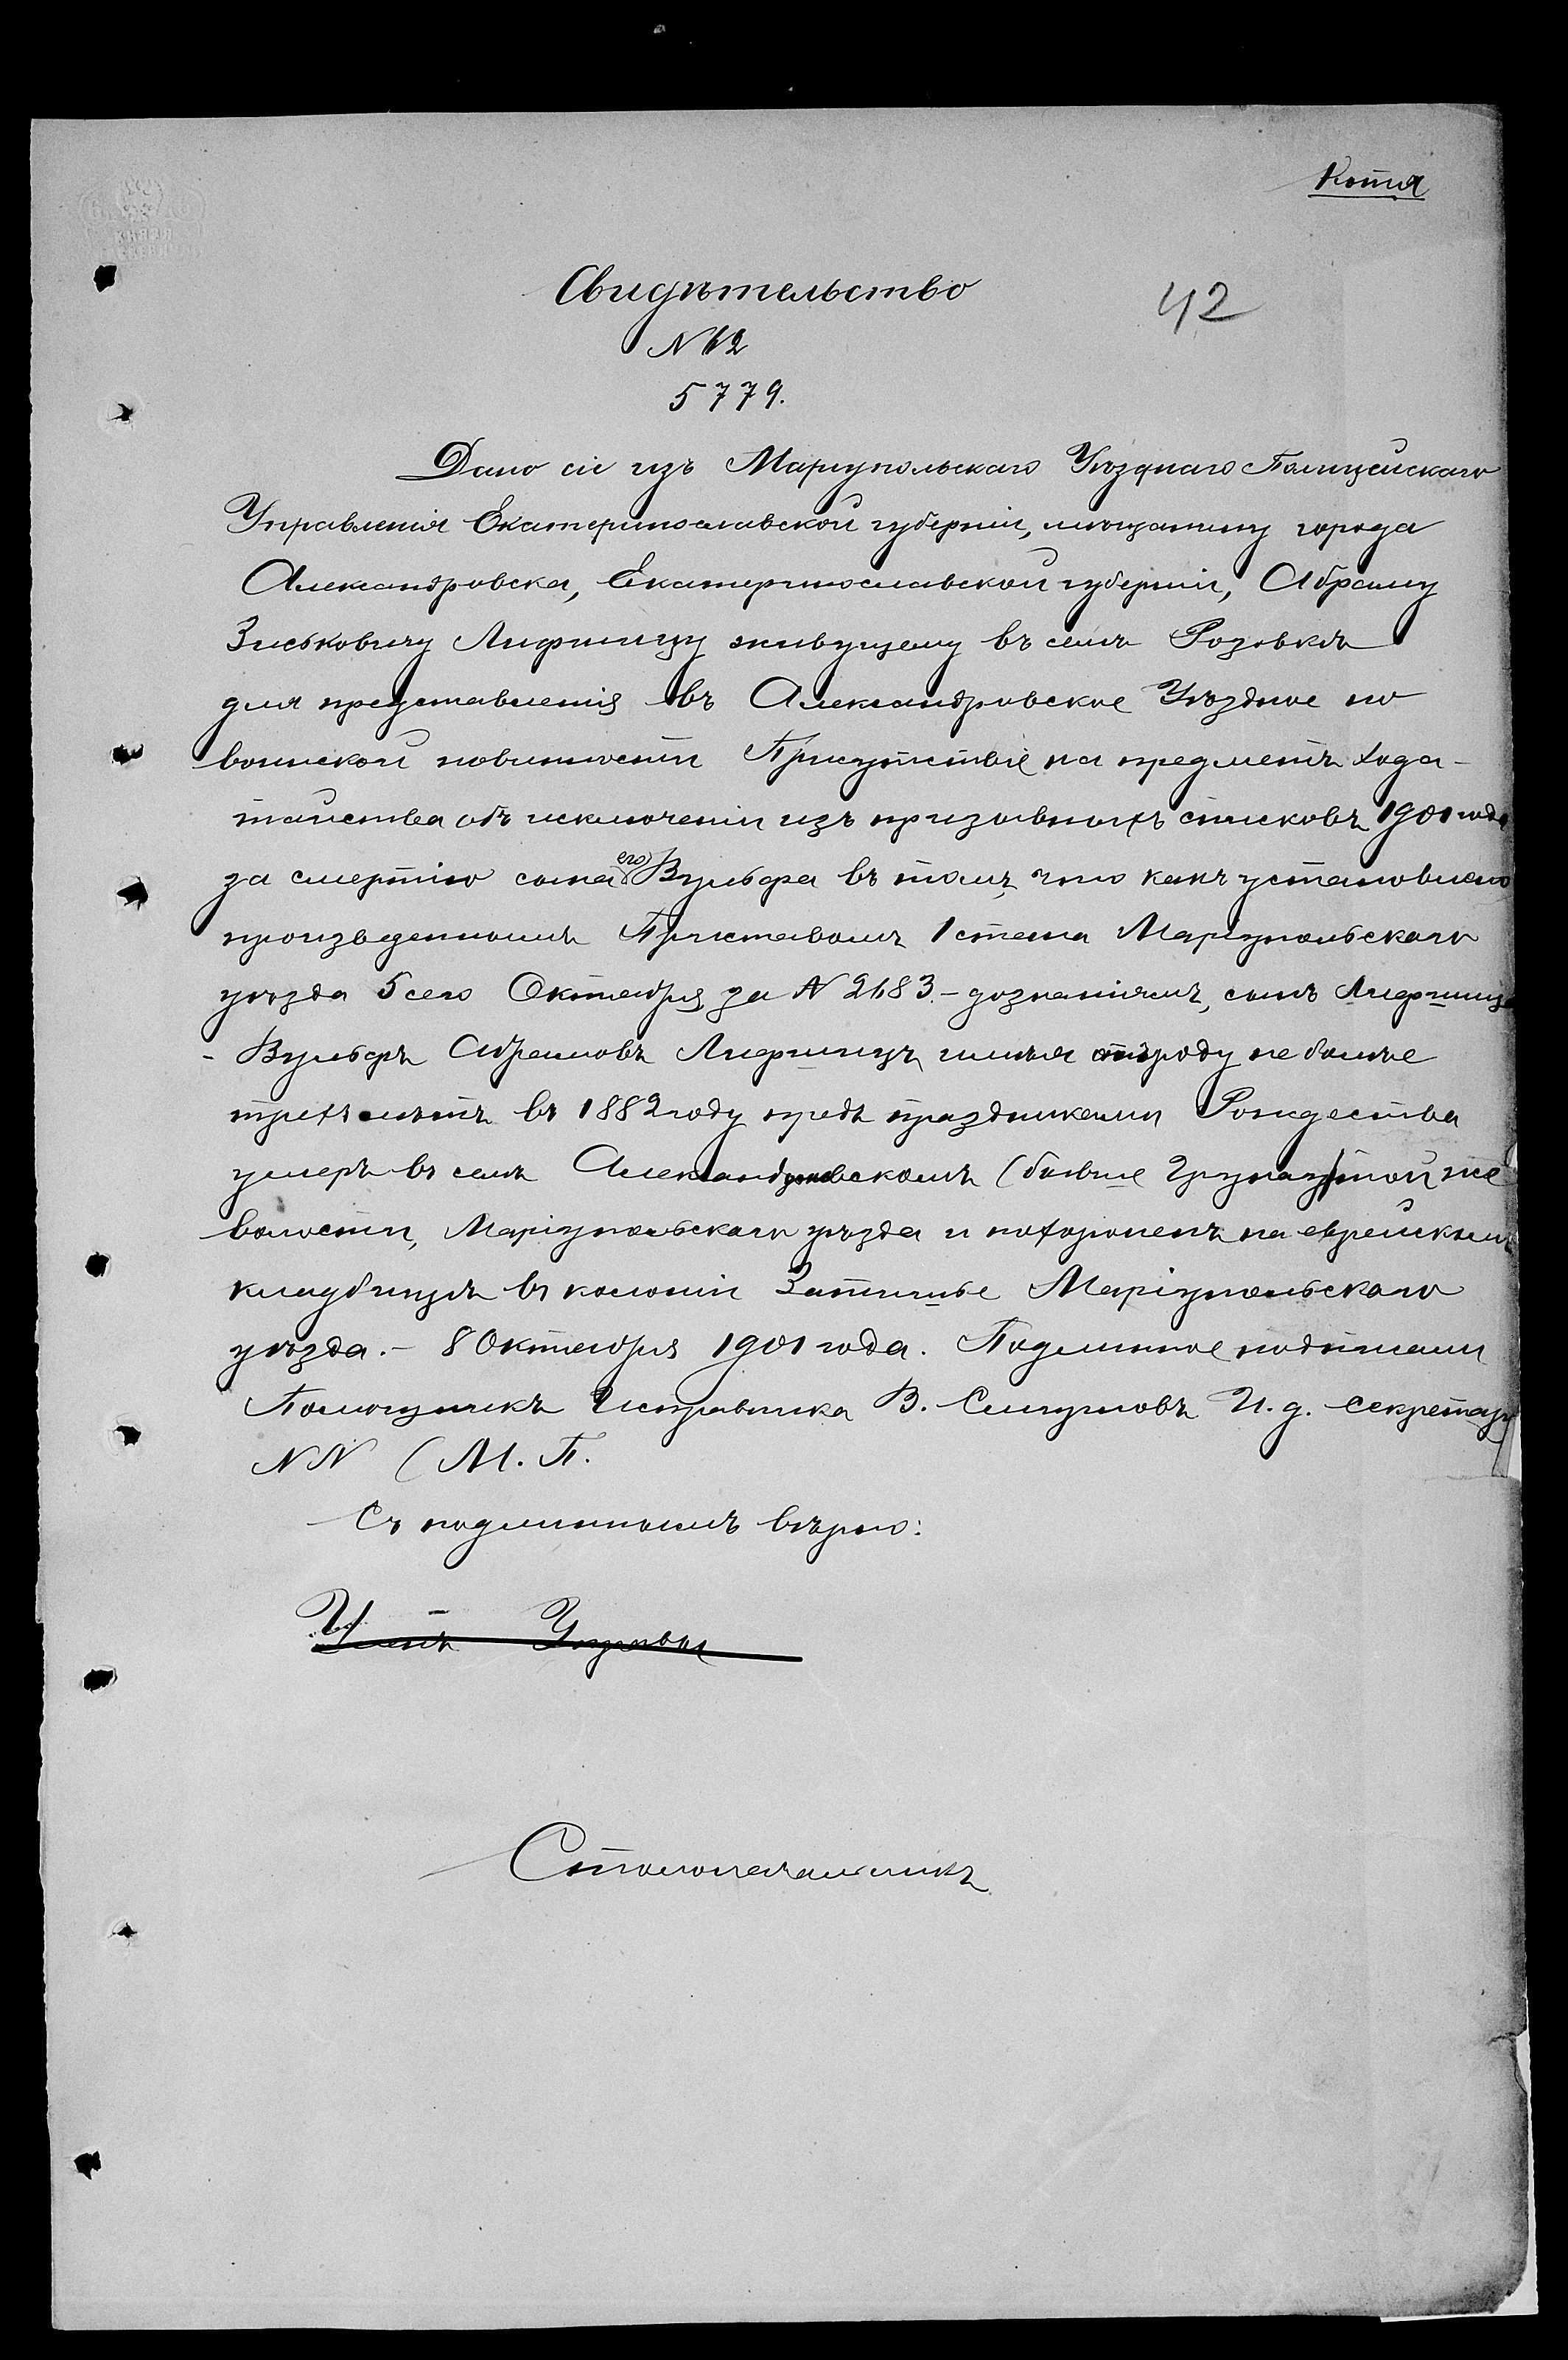 Копія
Свидѣтельство
42
№ 12
5779.
Дано сіе изъ Маріупольскаго Уѣзднаго Полицейскаго
Управленія Екатеринославской губерніи, мѣщанину города
Александровска, Екатеринославской губерніи, Абраму
Зиськовичу Лифшицу живущему въ селѣ Розовкѣ
для представленія въ Александровское Уѣздное по
воинской повинности Присутствіе на предметъ хода-
тайства объ исключеніи изъ призывныхъ списковъ 1901 года
за смертію сына его Вульфа въ томъ, что какъ установлено
произведеннымъ Приставомъ 1 стана Маріупольскаго
уѣзда 5 сего Октября за № 2183.- дознаніемъ, сынъ Лифшица
- Вульфъ Абрамовъ Лифшицъ, имѣя отъ роду не болѣе
трехъ лѣтъ въ 1882 году предъ праздниками Рождества
умеръ въ селѣ Александровскомъ (бывше той же
волости, Маріупольскаго уѣзда и похороненъ на еврейскомъ
кладбищѣ въ колоніи Затишье Маріупольскаго
уѣзда.- 8 Октября 1901 года. Подлинное подписали
Помощникъ Исправника В. И. д. Секретаря
NN (М. П.
Съ подлиннымъ вѣрно:
Членъ Управы
Столоначальникъ